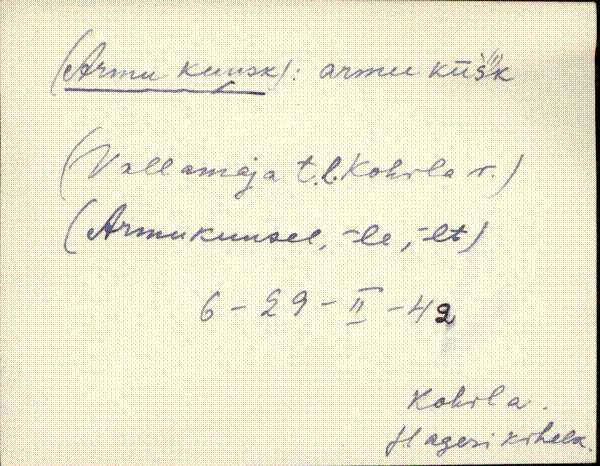 (Armu kuusk): armu kūšk
(Vallamaja t.l. Kohila v.)
(Armukuusel, -le, -lt)
6 - 29 - II - 42
Kohila.
Hageri kihelk.